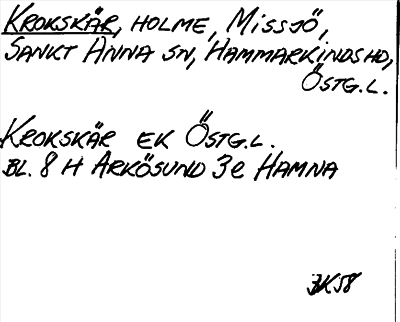 KROKSKÄR, HOLME, MISSJÖ,
SANKT ANNA SN, HAMMARKINDS HD,
ÖSTG.L.
KROKSKÄR EK ÖSTG.L.
BL. 8 H ARKÖSUND 3e HAMNA